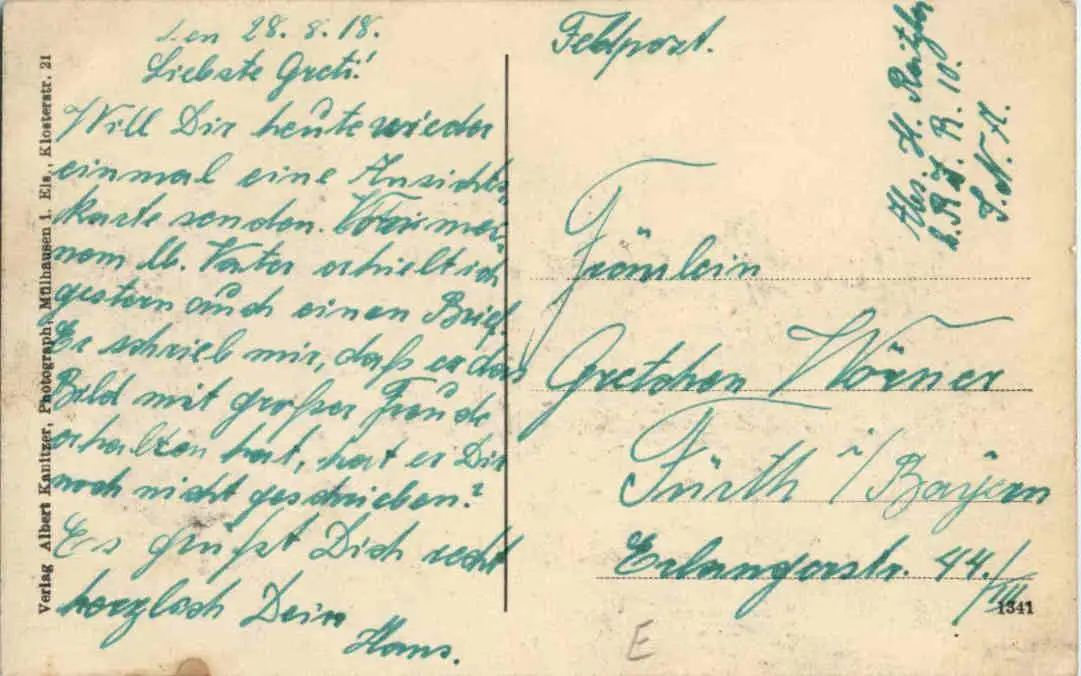 den 28. 8. 18.
Liebste Greti!
Will Dir heute wieder
einmal eine Ansichts-
karte senden. Von mei-
nem lb. Vater erhielt ich
gestern auch einen Brief.
Er schrieb mir, daß er das
Bild mit großer Freude
erhalten hat, hat er Dir
noch nicht geschrieben?
Es grüßt Dich recht
herzlich Dein
Hans.
Feldpost.
Abs. H.
R. 10.
S. N. A.
Fräulein
Gretchen Wörner
Fürth i/Bayern
Erlangerstr. 44./III
Verlag Albert Kanitzer, Photograph, Mülhausen i. Els., Klosterstr. 21
1341
E